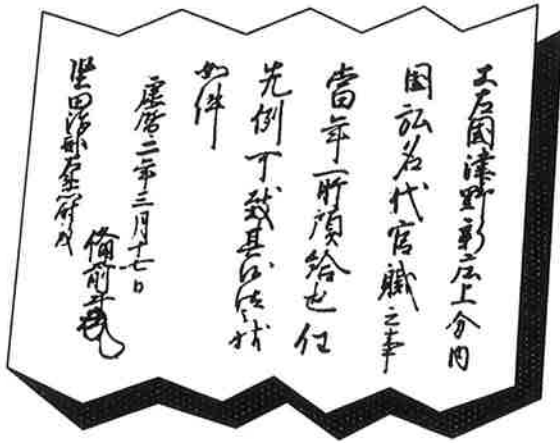 土左國津野新庄上分内
国弘名代官職之事
當年所預給也任
先例可致其沙汰之状
如件
康暦二年三月十七日
備前守
堅田治部左衛門尉殿